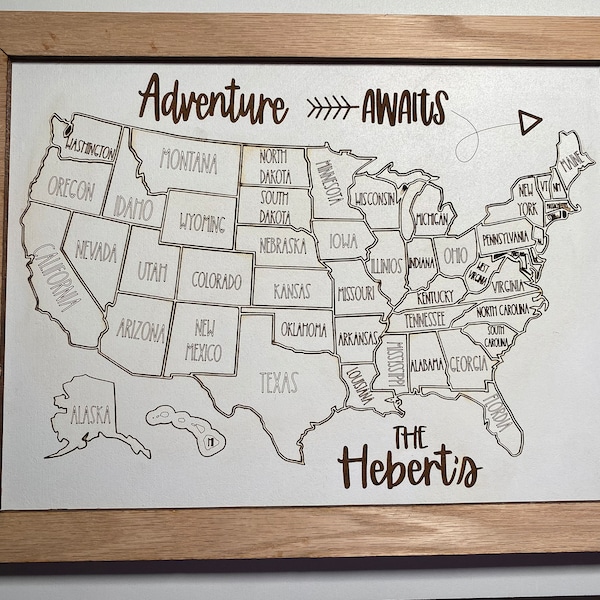 Adventure AWAITS
WASHINGTON
MONTANA
NORTH DAKOTA
MINNESOTA
MAINE
OREGON
IDAHO
WYOMING
SOUTH DAKOTA
WISCONSIN
MICHIGAN
NEW YORK
VT
NH
NEVADA
UTAH
COLORADO
NEBRASKA
IOWA
ILLINIOS
INDIANA
OHIO
PENNSYLVANIA
CALIFORNIA
KANSAS
MISSOURI
KENTUCKY
WEST VIRGINIA
VIRGINIA
ARIZONA
NEW MEXICO
OKLAHOMA
ARKANSAS
TENNESSEE
NORTH CAROLINA
SOUTH CAROLINA
TEXAS
LOUISIANA
MISSISSIPPI
ALABAMA
GEORGIA
FLORIDA
ALASKA
HI
THE
Hebert's